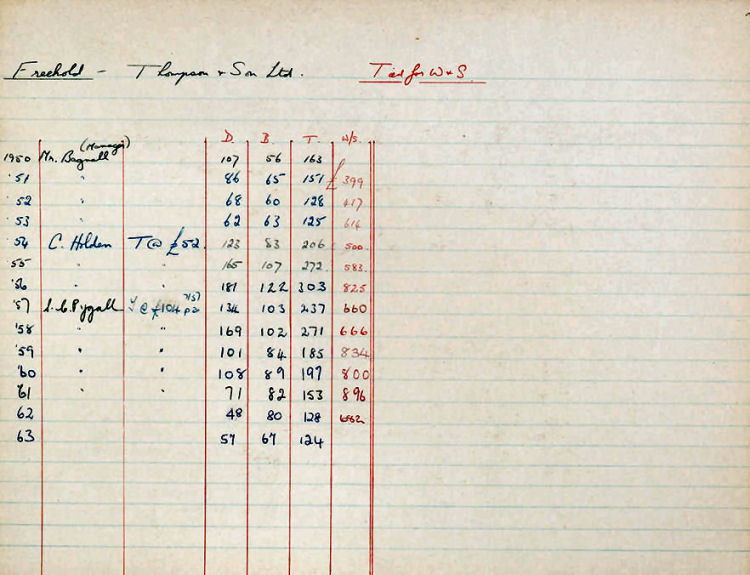 Freehold - Thompson & Son Ltd. Tied for W & S.
D. B. T. W/S.
(Manager)
1950 Mr. Bagnall 107 56 163
'51 " 86 65 151 £399
'52 " 68 60 128 417
'53 " 62 63 125 614
'54 C. Holden T @ £52. 123 83 206 500
55 " " 165 107 272 583
'56 " " 181 122 303 825
'57 Pygall T @ £104 7/57 pa 134 103 237 660
'58 " " 169 102 271 666
'59 " " 101 84 185 834
'60 " " 108 89 197 800
'61 " " 71 82 153 896
62 48 80 128 682
63 57 67 124